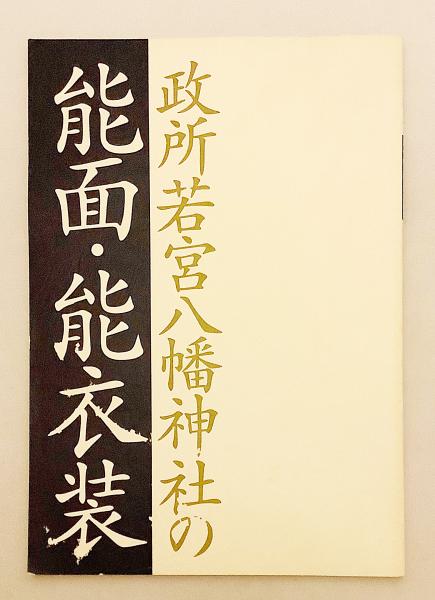 政所若宮八幡神社の
能面・能衣装